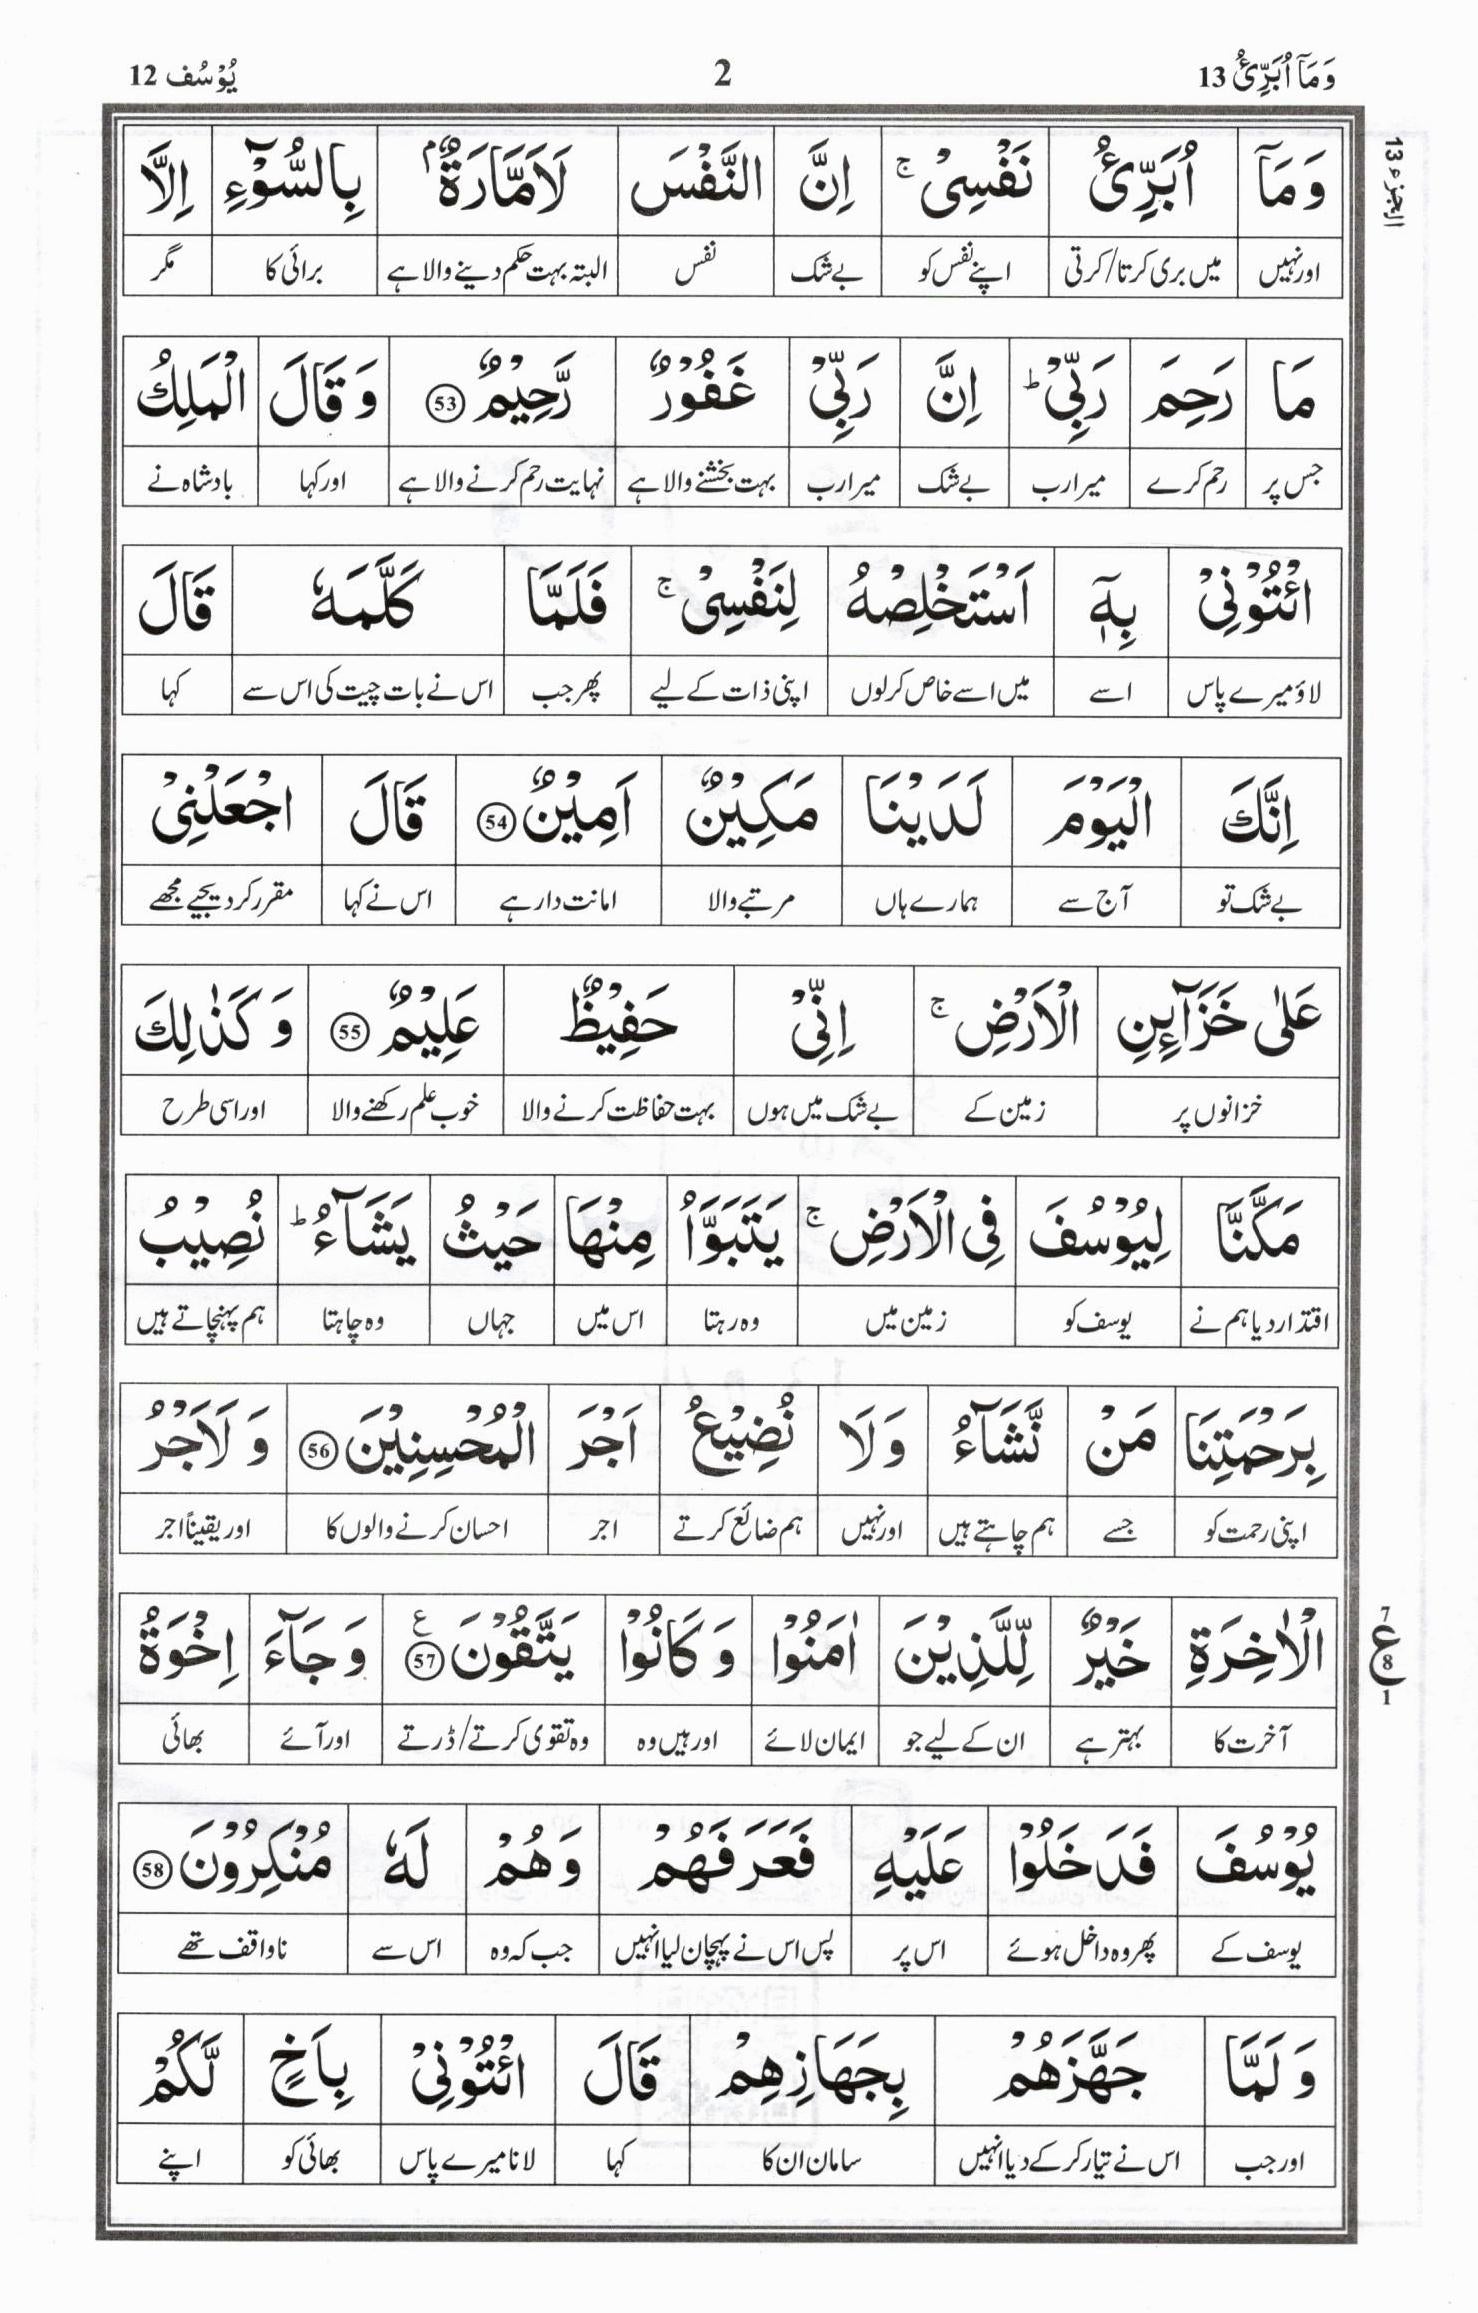 وَمَآ اُبَرِّئُ 13 2 يُوْسُف 12
الجزء 13
وَمَآ اُبَرِّئُ نَفْسِیْ ۚ اِنَّ النَّفْسَ لَاَمَّارَةٌۢ بِالسُّوْٓءِ اِلَّا
اور نہیں میں بری کرتا/کرتی اپنے نفس کو بے شک نفس البتہ بہت حکم دینے والا ہے برائی کا مگر
مَا رَحِمَ رَبِّیْ ؕ اِنَّ رَبِّیْ غَفُوْرٌ رَّحِیْمٌ 53 وَ قَالَ الْمَلِكُ
جس پر رحم کرے میرا رب بے شک میرا رب بہت بخشنے والا ہے نہایت رحم کرنے والا ہے اور کہا بادشاہ نے
ائْتُوْنِیْ بِهٖٓ اَسْتَخْلِصْهُ لِنَفْسِیْ ۚ فَلَمَّا كَلَّمَهٗ قَالَ
لاؤ میرے پاس اسے میں اسے خاص کر لوں اپنی ذات کے لیے پھر جب اس نے بات چیت کی اس سے کہا
اِنَّكَ الْیَوْمَ لَدَیْنَا مَكِیْنٌ اَمِیْنٌ 54 قَالَ اجْعَلْنِیْ
بے شک تو آج سے ہمارے ہاں مرتبے والا امانت دار ہے اس نے کہا مقرر کر دیجیے مجھے
عَلٰی خَزَآىِٕنِ الْاَرْضِ ۚ اِنِّیْ حَفِیْظٌ عَلِیْمٌ 55 وَ كَذٰلِكَ
خزانوں پر زمین کے بے شک میں ہوں بہت حفاظت کرنے والا خوب علم رکھنے والا اور اسی طرح
مَكَّنَّا لِیُوْسُفَ فِی الْاَرْضِ ۚ یَتَبَوَّاُ مِنْهَا حَیْثُ یَشَآءُ ؕ نُصِیْبُ
اقتدار دیا ہم نے یوسف کو زمین میں وہ رہتا اس میں جہاں وہ چاہتا ہم پہنچاتے ہیں
بِرَحْمَتِنَا مَنْ نَّشَآءُ وَ لَا نُضِیْعُ اَجْرَ الْمُحْسِنِیْنَ 56 وَ لَاَجْرُ
اپنی رحمت کو جسے ہم چاہتے ہیں اور نہیں ہم ضائع کرتے اجر احسان کرنے والوں کا اور یقیناً اجر
الْاٰخِرَةِ خَیْرٌ لِّلَّذِیْنَ اٰمَنُوْا وَ كَانُوْا یَتَّقُوْنَ 57 ع وَ جَآءَ اِخْوَةُ
7 ع 8 1
آخرت کا بہتر ہے ان کے لیے جو ایمان لائے اور ہیں وہ وہ تقوی کرتے/ڈرتے اور آئے بھائی
یُوْسُفَ فَدَخَلُوْا عَلَیْهِ فَعَرَفَهُمْ وَ هُمْ لَهٗ مُنْكِرُوْنَ 58
یوسف کے پھر وہ داخل ہوئے اس پر پس اس نے پہچان لیا انہیں جب کہ وہ اس سے ناواقف تھے
وَ لَمَّا جَهَّزَهُمْ بِجَهَازِهِمْ قَالَ ائْتُوْنِیْ بِاَخٍ لَّكُمْ
اور جب اس نے تیار کر کے دیا انہیں سامان ان کا کہا لانا میرے پاس بھائی کو اپنے